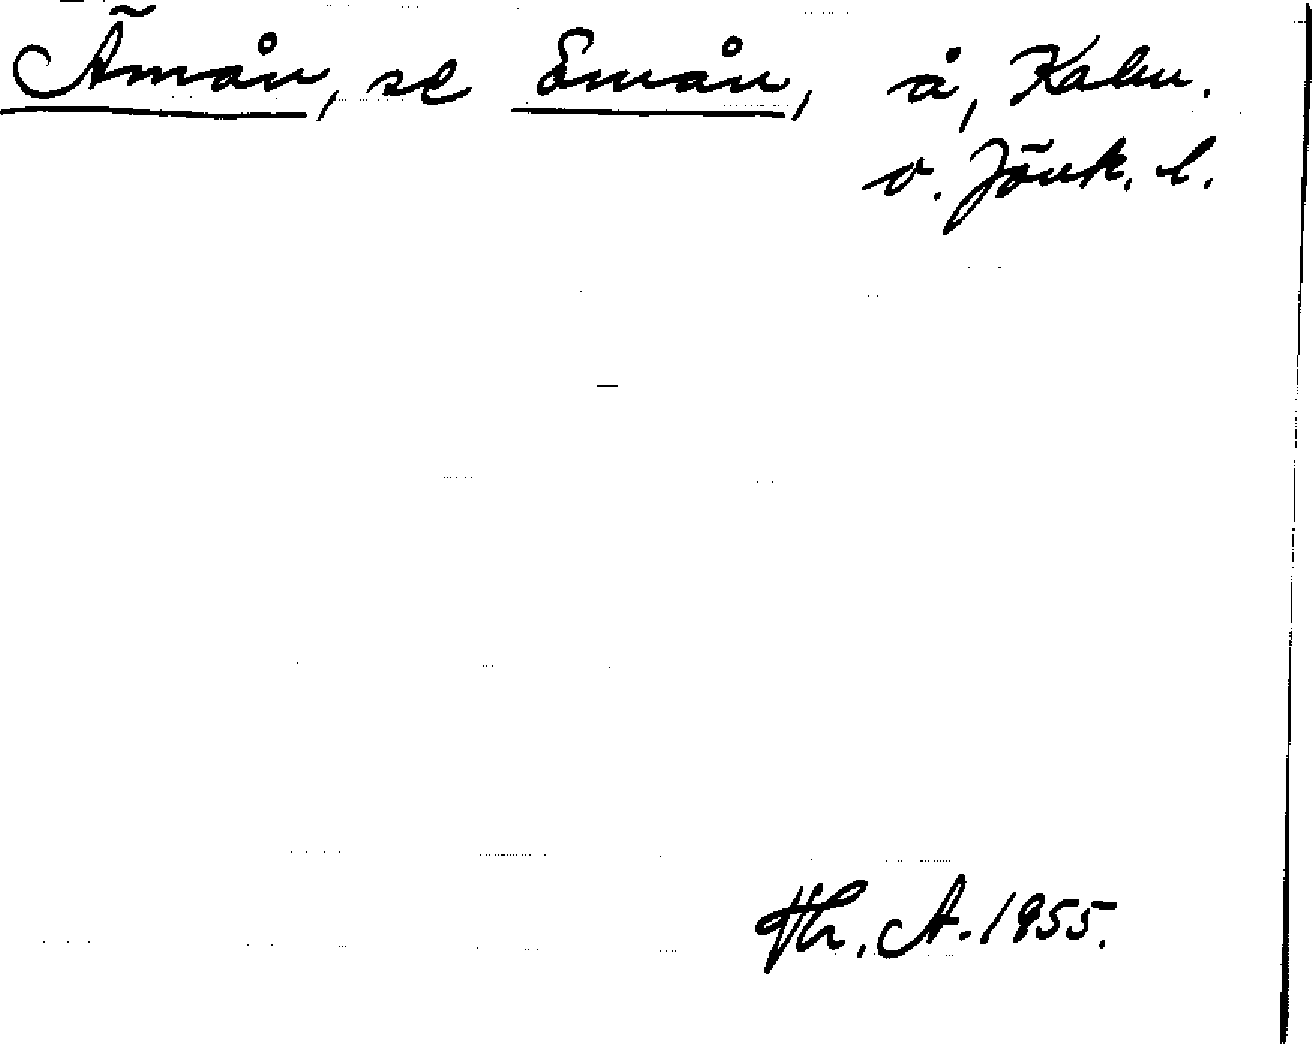 Ämån, se Emån, å, Kalm.
o. Jönk. l.
Th. A. 1955.